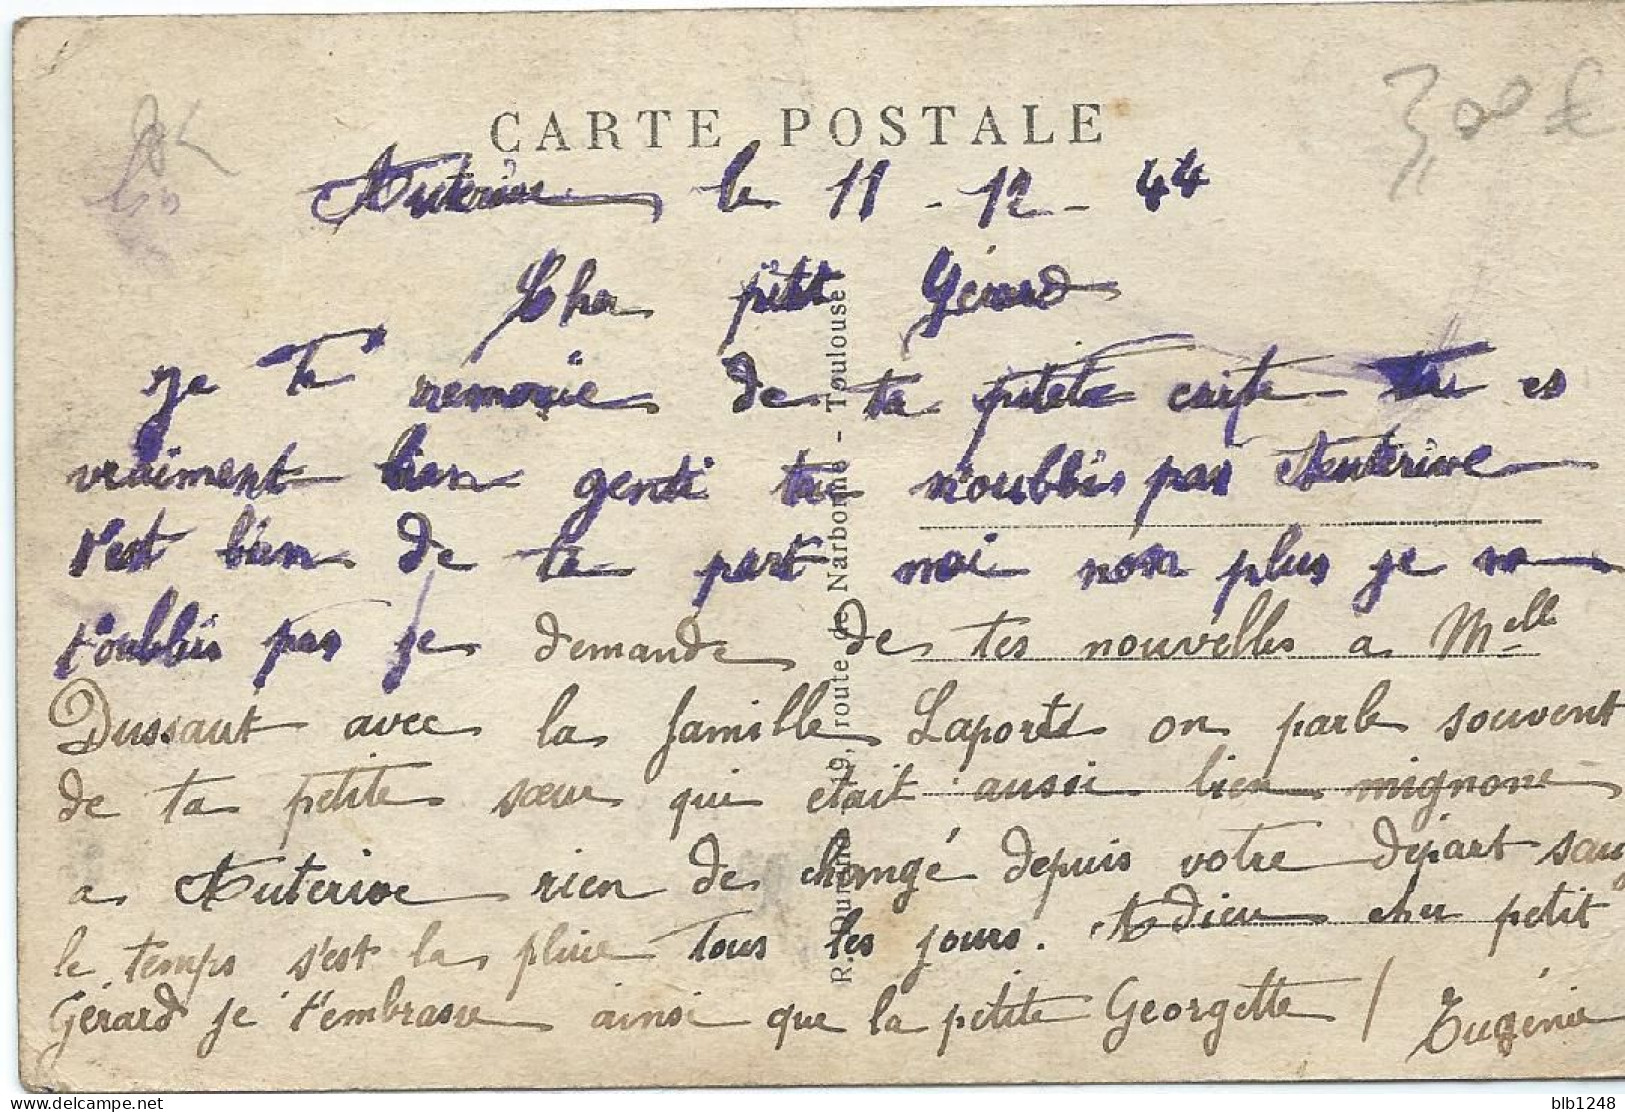 CARTE POSTALE
300 €
Auterive le 11 - 12 - 44
Cher petit Gérard
je te remercie de ta petite carte tu es
vraiment bien genti tu n'oublis pas Auterive
s'est bien de ta part moi non plus je ne
t'oublis pas je demande de tes nouvelles a Melle
Dussaut avec la famille Laporte on parle souvent
de ta petite sœur qui etait aussi bien mignone
a Auterive rien de changé depuis votre départ sauf
le temps s'est la pluie tous les jours. Adieu cher petit
Gérard je t'embrasse ainsi que la petite Georgette / Eugénie
19, route de Narbonne - Toulouse
blb1248